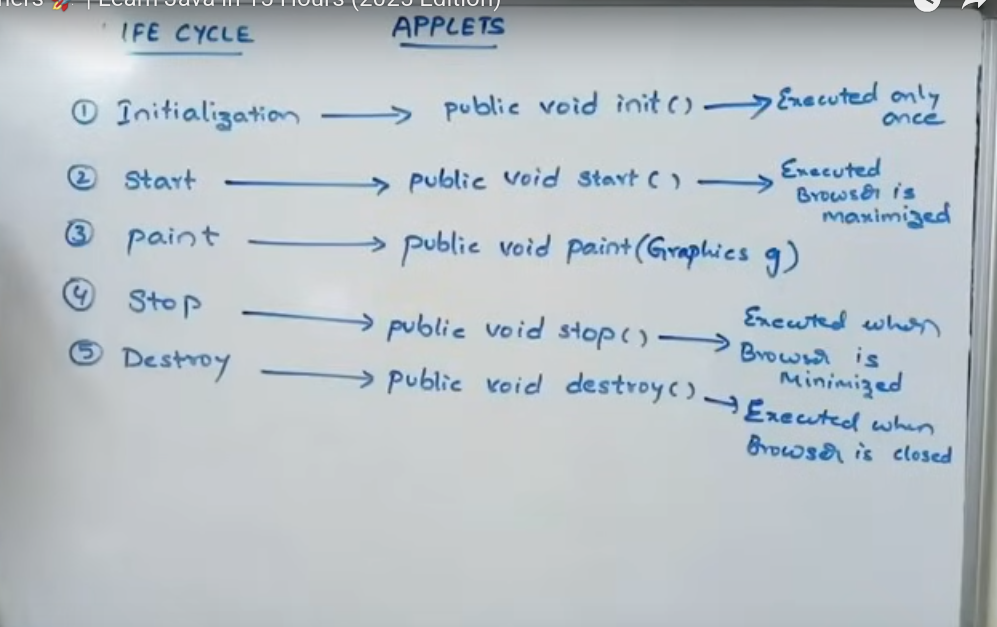 🚀 | Learn Java in 15 Hours (2025 Edition)
IFE CYCLE APPLETS
① Initialization → public void init() → Executed only once
② Start → public void start() → Executed Browser is maximized
③ paint → public void paint(Graphics g)
④ Stop → public void stop() → Executed when Browser is Minimized
⑤ Destroy → public void destroy() → Executed when Browser is closed